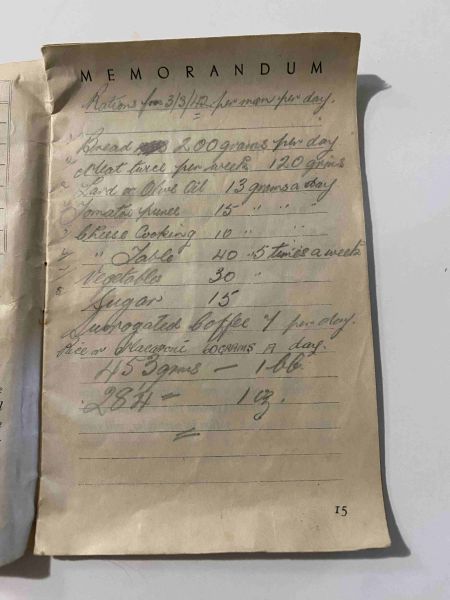 MEMORANDUM
Rations from 3/3/42 per man per day.
Bread 200 grams per day
Meat twice per week 120 grms
Lard or Olive Oil 13 grms a day
Tomatoe puree 15 " " "
Cheese Cooking 10 " " "
" Table 40 " 5 times a week
Vegetables 30 "
Sugar 15
Surrogated Coffee 7 per day.
Rice or Macaroni 60 GRAMS A day.
453 grms — 1 lb.
28 4 = 1 oz.
=
15